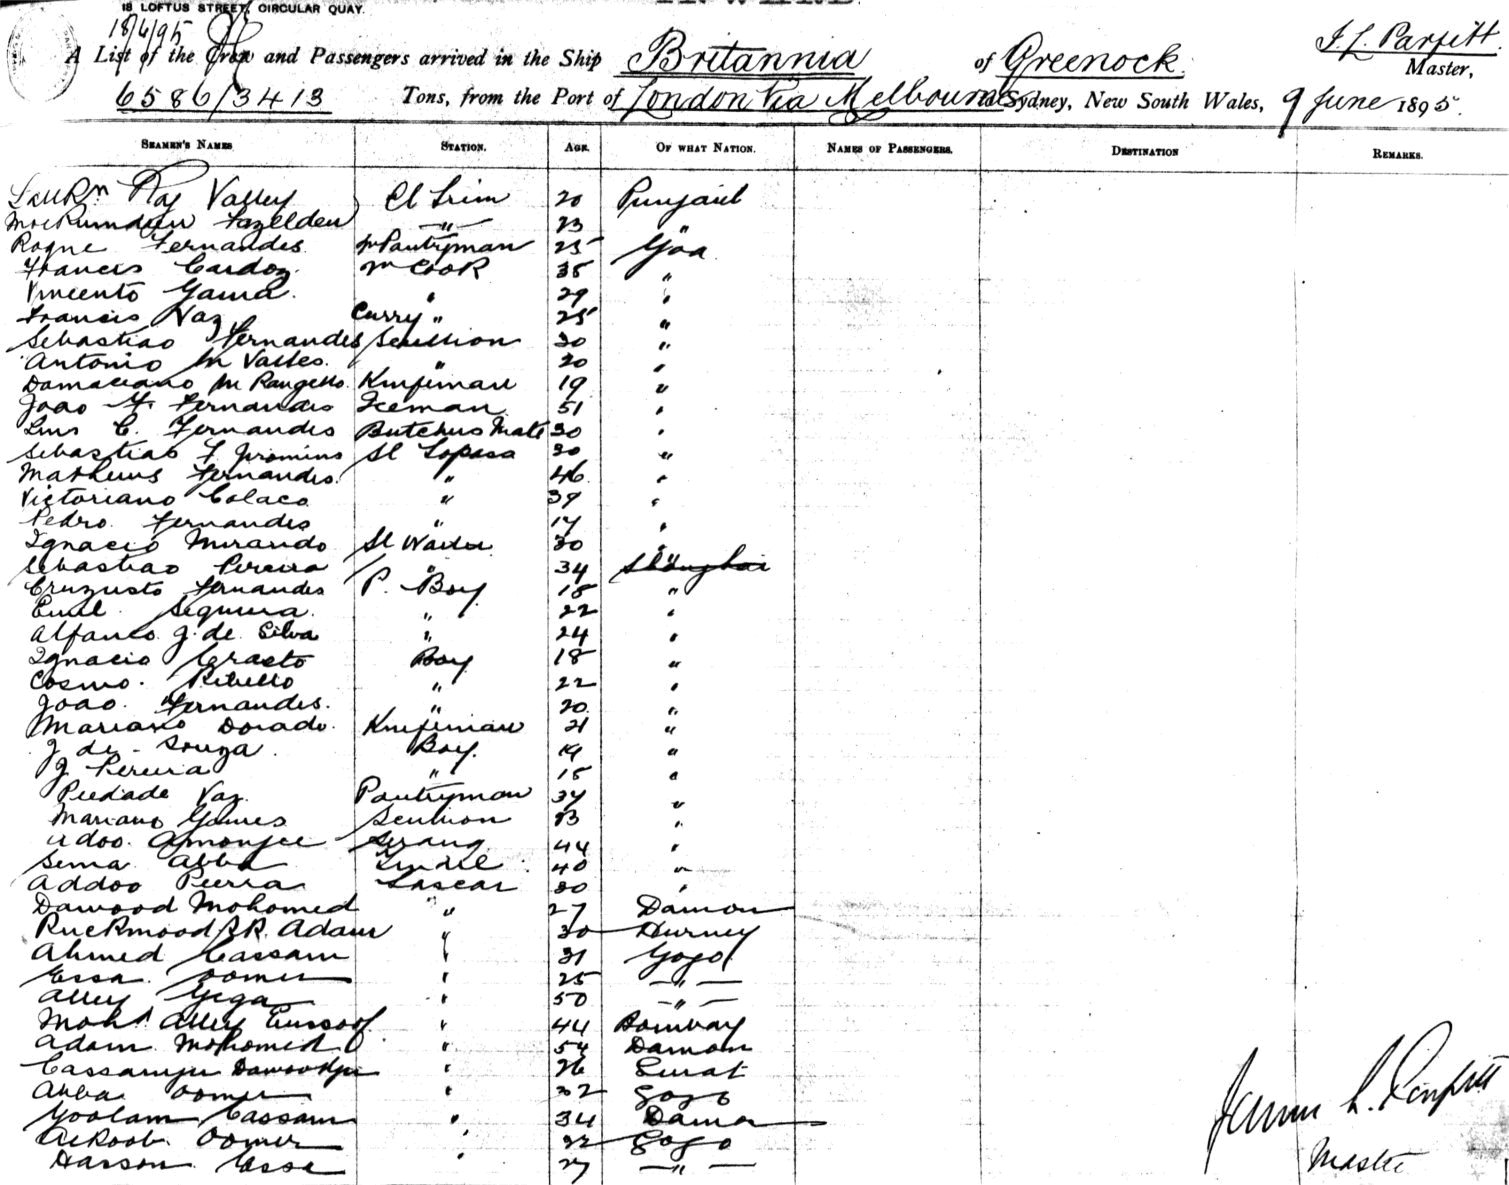 18 LOFTUS STREET, CIRCULAR QUAY.
18/6/95
A List of the Crew and Passengers arrived in the Ship Britannia of Greenock J. L. Parfitt Master,
6586/3413 Tons, from the Port of London via Melbourne to Sydney, New South Wales, 9 June 1895.
SEAMEN'S NAMES STATION. AGE. OF WHAT NATION. NAMES OF PASSENGERS. DESTINATION REMARKS.
Valley Cl Trim 20 Punjaub
Fazelden —"— 23 "
Roque Fernandes Pantryman 25 Goa
Francis Cardoz. Cook 35 "
Vincento Gama. " 29 "
Francis Vaz Curry " 25 "
Sebastiao Fernandes Scullion 30 "
Antonio M Valles. " 20 "
Damaciano M Rangello. Knifeman 19 "
Joao F. Fernandes Iceman 51 "
Luis C. Fernandes Butchers Mate 30 "
Sebastiao F Sl Topass 30 "
Matheus Fernandes. " 46 "
Victoriano Colaco " 39 "
Pedro. Fernandes " 17 "
Ignacio Mirando Sl Waiter 30 "
Sebastiao Pereira " 34 Shanghai "
Fernandes P. Boy 18 "
Emil Sequeira. " 22 "
Alfanco J. de Silva " 24 "
Ignacio Boy 18 "
Cosmo. Rebello " 22 "
Joao. Fernandes. " 20 "
Mariano Dorado. Knifeman 21 "
J de - Souza. Boy. 19 "
J Pereira " 18 "
Piedade Vaz. Pantryman 34 "
Mariano Gomes Scullion 23 "
Adoo. Amonjee Serang 44 "
Sema Abba Tindal 40 "
Addoo Peera Lascar 30 "
Dawood Mohomed " 27 Damon
Ruckmood R. Adam " 30 Hurney
Ahmed Cassam " 31 Gogo
Essa. Oomer " 25 —"—
Alley Gega " 50 —"—
Mohd Alley Eussoof " 44 Bombay
Adam Mohomed " 54 Damon
Cassamjee Dawoodjee " 26 Surat
Abba Oomer " 32 Gogo
Goolam Cassam " 34 Damon
Oomer " 32 Gogo
Hasson Essa " 27 —"—
James L. Parfitt
Master